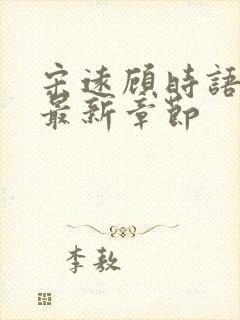 宋遠顧時語
最新章節
李敖